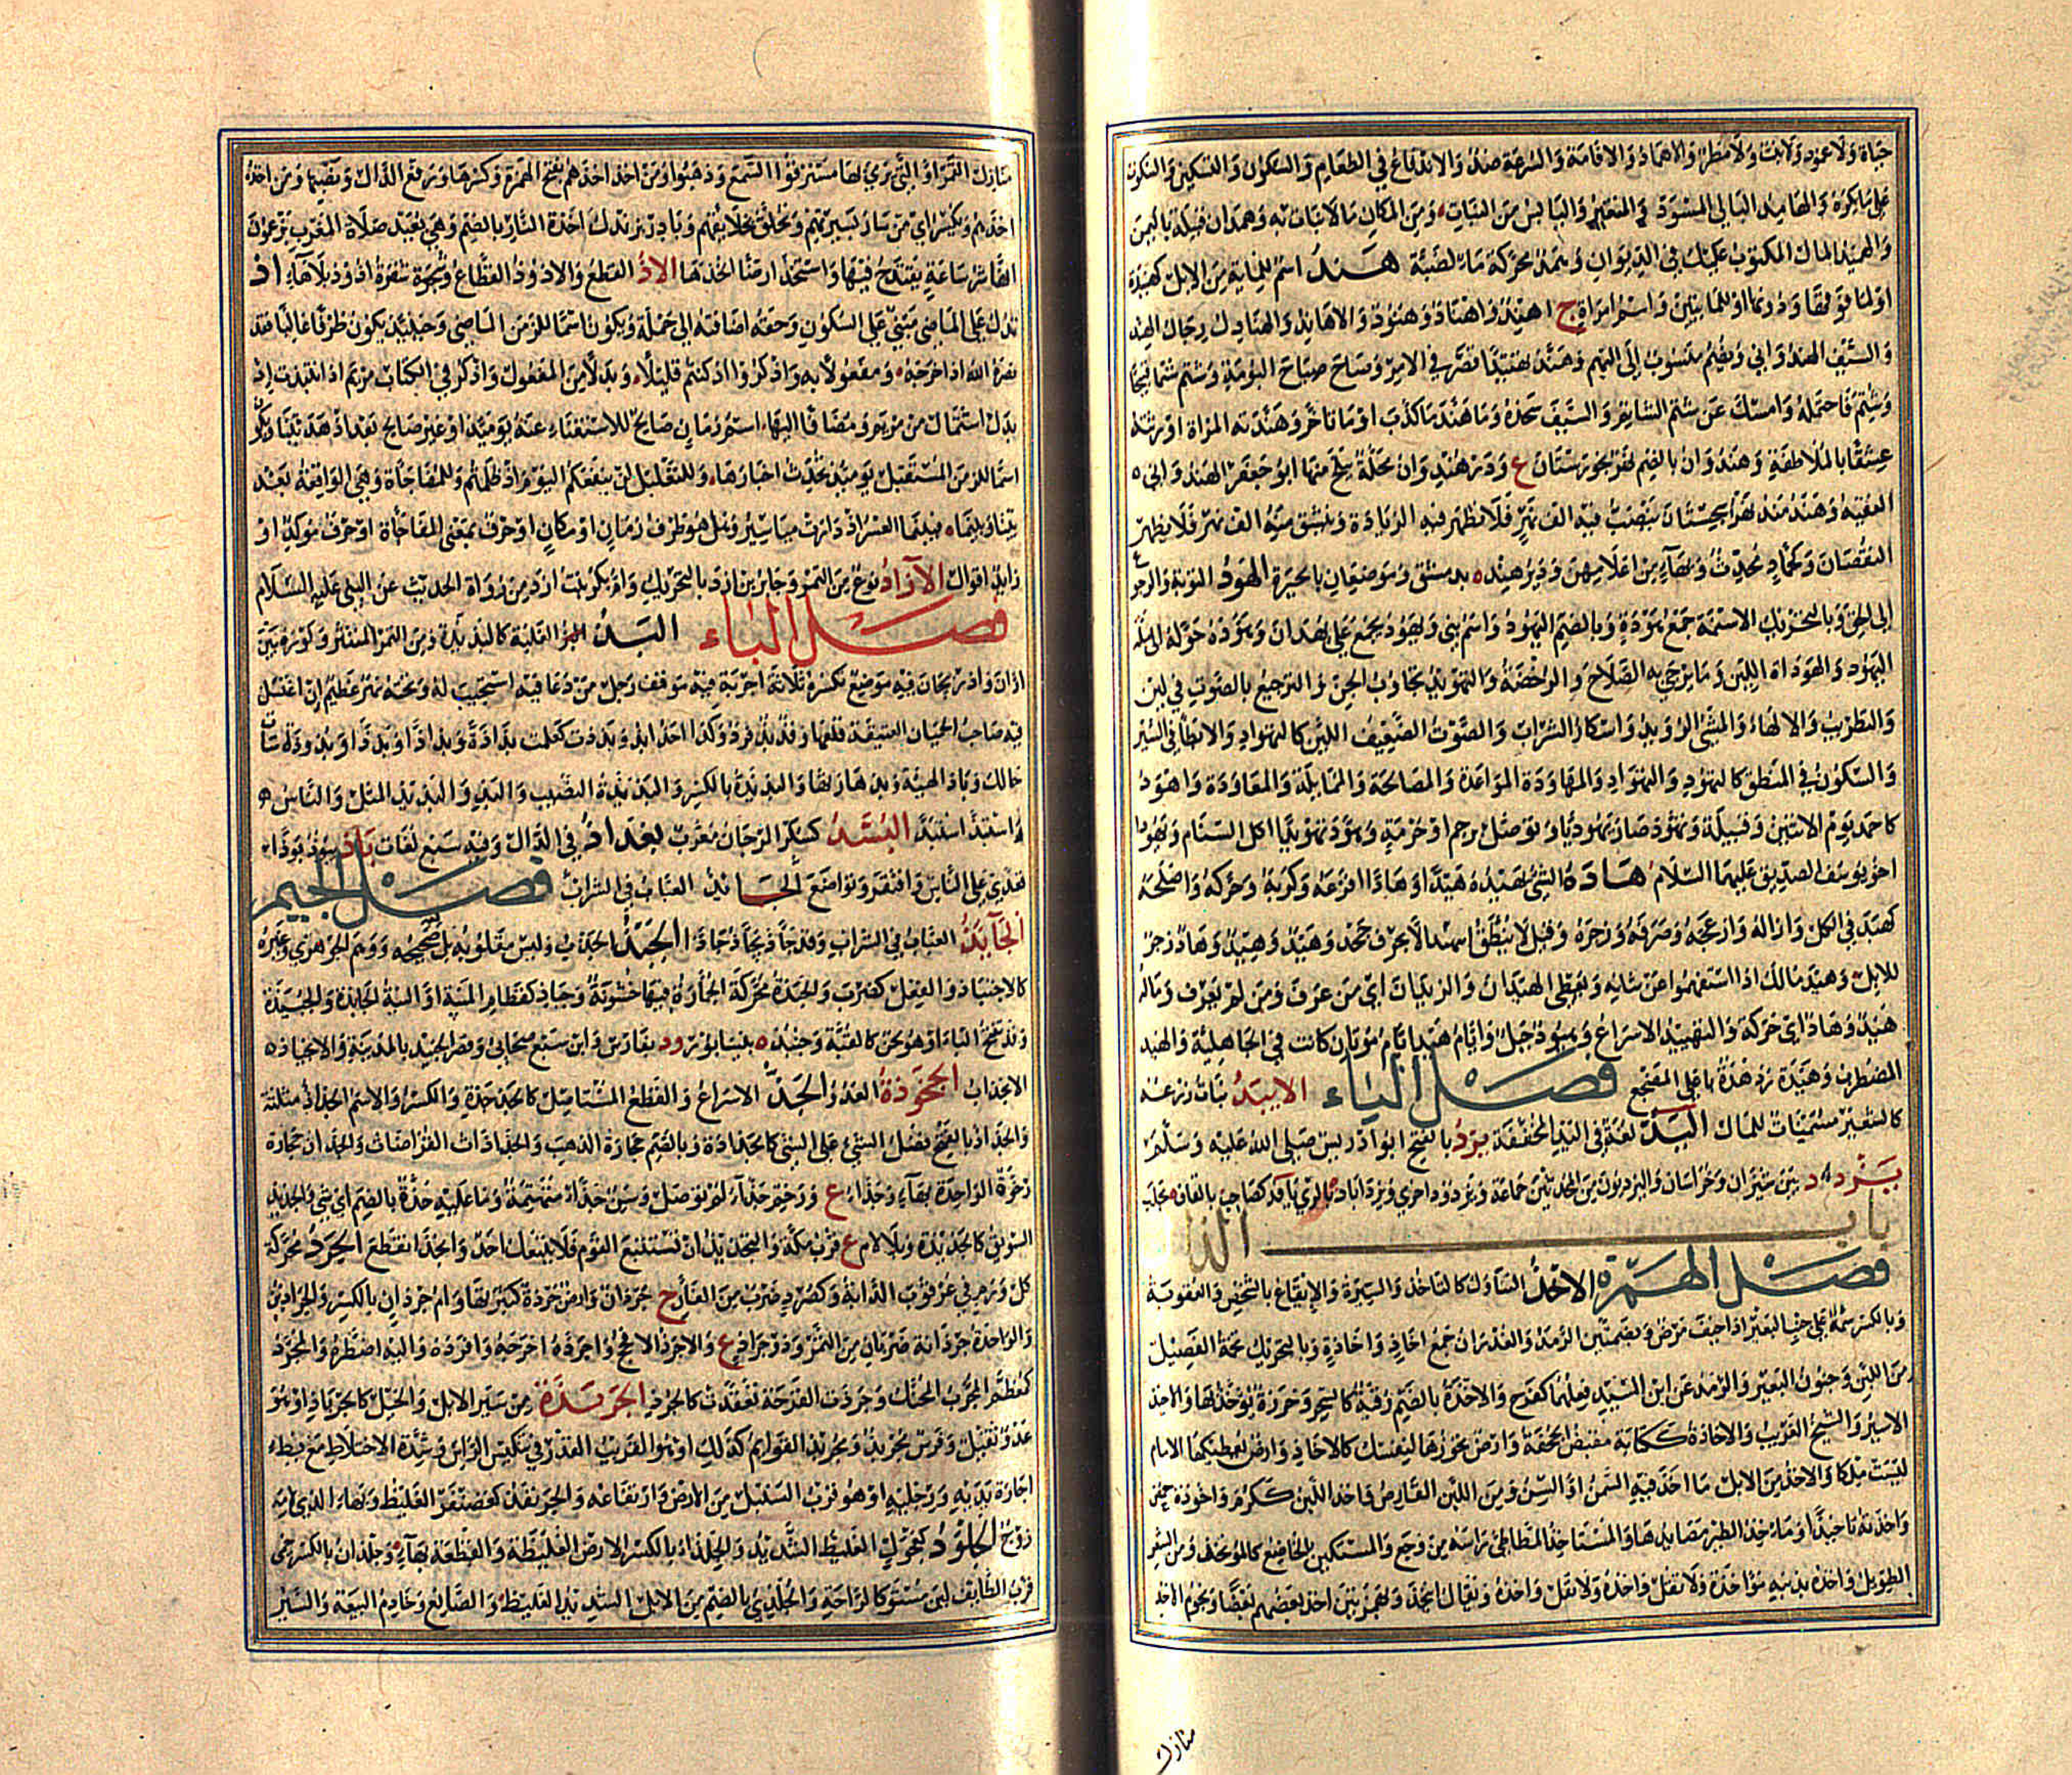 حياة ولا عود ولا نبت ولا مطر والاهماد الاقامة والسرعة ضد والاندفاع في الطعام والسكون والتسكين والسكوت
على ما يكره والهامد البالي المسود المتغير واليابس من النبات ومن المكان ما لا نبات به وهمدان قبيلة باليمن
والهميد المال المكتوب عليك في الديوان وهمد محركة ماء لضبة هند اسم للمائة من الابل كهنيدة
او لما فوقها ودونها او للمايتين واسم امراة ج اهند واهناد وهنود والاهاند والهنادك رجال الهند
والسيف الهندواني ويضم منسوب اليهم وهند تهنيدا قصر في الامر وصاح صياح البومة وشتم شتما قبيحا
وشتم فاحتمله وامسك عن شتم الشاتم والسيف شحذه وما هند ما كذب او ما تاخر وهندته المراة اورثته
عشقا بالملاطفة وهندوان بالضم نهر بخوزستان ع ودرهندوان محلة ببلخ منها ابو جعفر الهندواني
الفقيه وهندمند نهر بسجستان ينصب فيه الف نهر فلا تظهر فيه الزيادة وينشق منه الف نهر فلا يظهر
النقصان وكحماد محدث وبهاء من اعلامهن ودير هند ة بدمشق وموضعان بالحيرة الهود التوبة والرجوع
الى الحق وبالتحريك الاسنمة جمع هودة وبالضم اليهود واسم نبي ويهود يجمع على يهدان وهوده حوله الى ملة
اليهود والهوادة اللين وما يرجى به الصلاح والرخصة والتهويد تجاوب الجن والترجيع بالصوت في لين
والتطريب والالهاء والمشي الرويد واسكار الشراب والصوت الضعيف اللين كالتهواد والابطاء في السير
والسكون في المنطق كالتهود والتهواد والمهاودة الموادعة والمصالحة والممايلة والمعاودة واهود
كاحمد يوم الاثنين وقبيلة وتهود صار يهوديا وتوصل برحم او حرمة وهود تهويدا اكل السنام ويهودا
اخو يوسف الصديق عليهما السلام هاده الشئ يهيده هيدا وهادا افزعه وكربه وحركه واصلحه
كهيده في الكل وازاله وازعجه وصرفه وزجره وقيل لا ينطق بيهيد الا بحرف جحد وهيد وهيد وهاد زجر
للابل وهيد مالك اذا استفهموا عن شانه ويعطى الهيدان والزيدان اي من عرف ومن لم يعرف وماله
هيد وهاد اي حركة والتهييد الاسراع وهيود جبل وايام هيد ايام موتان كانت في الجاهلية والهيد
المضطرب وهيدة ردهة باعلى المضجع فصل الياء الابيد نبات وزرعه
كالشعير مسمنة للمال اليد لغة في اليد المخففة يرد بالفتح ابو ادريس صلى الله عليه وسلم
يزد د بين شيراز وخراسان واليزديون من المحدثين جماعة ويزدود اخرى ويزداباد ة بالري يافد كصاحب بالفاء ة بحلب
باب الذال
فصل الهمزة الاخذ التناول كالتاخاذ والسيرة والايقاع بالشخص والعقوبة
وبالكسر سمة على جنب البعير اذا خيف مرض وبضمتين الرمد والغدران جمع اخاذ واخاذة وبالتحريك تخمة الفصيل
من اللبن وجنون البعير والرمد عن ابن السيد فعلهما كفرح والاخذة بالضم رقية كالسحر وخرزة يؤخذ بها والاخيذ
الاسير والشيخ الغريب والاخاذة ككتابة مقبض الحجفة وارض تحوزها لنفسك كالاخاذ وارض يعطيكها الامام
ليست ملكا والاخذ من الابل ما اخذ فيه السمن او السن ومن اللبن القارص واخذ اللبن ككرم اخوذة حمض
واخذته تاخيذا ومآخذ الطير مصايدها والمستاخذ المطاطئ راسه من وجع والمستكين الخاضع كالموتخذ ومن الشعر
الطويل واخذه بذنبه مؤاخذة ولا تقل واخذه ويقال ائتخذوا بهمزتين اخذ بعضهم بعضا ونجوم الاخذ
منازل
منازل القمر او التي يرمى بها مسترقوا السمع وذهبوا ومن اخذ اخذهم بفتح الهمزة وكسرها ورفع الذال ونصبها ومن اخذه
اخذهم ويكسر اي من سار بسيرتهم وتخلق بخلايقهم وبادر بزندك اخذة النار بالضم وهي بعيد صلاة المغرب يزعمون
انها شر ساعة يقتدح فيها واستخذ ارضا اتخذها الاذ القطع والاذوذ القطاع وشفرة اذوذ بلا هاء اذ
تدل على الماضي مبني على السكون وحقه اضافته الى جملة ويكون اسما للزمن الماضي وحينئذ يكون ظرفا غالبا فقد
نصره الله اذ اخرجه ومفعولا به واذكروا اذ كنتم قليلا وبدلا من المفعول واذكر في الكتاب مريم اذ انتبذت اذ
بدل اشتمال من مريم ومضافا اليها اسم زمان صالح للاستغناء عنه يومئذ او غير صالح بعد اذ هديتنا ويكون
اسما للزمن المستقبل يومئذ تحدث اخبارها وللتعليل لن ينفعكم اليوم اذ ظلمتم وللمفاجاة وهي الواقعة بعد
بينا وبينما فبينما العسر اذ دارت مياسير وهل هو ظرف زمان او مكان او حرف بمعنى المفاجاة او حرف مؤكد او
زايد اقوال الآزاذ نوع من التمر وجابر بن ازذ بالتحريك وام بكر بنت ازذ من رواة الحديث عن النبي عليه السلام
فصل الباء البذ الغلبة كالبذيذة ومن التمر المنتثر وكورة بين
اران واذربيجان فيه موضع تكسيره ثلاثة اجربة فيه موقف رجل من دعا فيه استجيب له وتحته نهر عظيم ان اغتسل
فيه صاحب الحميات العتيقة قلعها وفذ بذ فرد وكذا احذ ابذ وبذذت كعلمت بذاذة وبذاذا وبذذا وبذوذة ساءت
حالك وباذ الهيئة وبذها رثها والبذة بالكسر والبذيذة النصيب والبذ والبذيذ المثل والناس
واستبذ استبد البسذ كسكر المرجان معرب بغداذ في الدال وفيه سبع لغات باذ يبوذ بوذا
تعدى على الناس وافتقر وتواضع الجائذ العباب في الشراب فصل الجيم
الجائذ العباب في الشراب وقد جأذ يجأذ جأذا الجبذ الجذب وليس مقلوبه بل لغة صحيحة ووهم الجوهري وغيره
كالاجتباذ والفعل كضرب والجبذة محركة الجمارة فيها خشونة وجباذ كقطام المنية او النية الجابذة والجنبذة
وقد تفتح الباء او هو لحن كالقبة وجنبذ ة بنيسابور ود بفارس وابن سبع صحابي وقصر الجنيد بالمدينة والاجباذ
الانجذاب الجخوذة العدو الجذ الاسراع والقطع المستاصل كالجذجذة والكسر والاسم الجذاذ مثلثة
والجذاذ بالفتح فصل الشيء على الشيء كالجذاذة وبالضم حجارة الذهب والجذاذات القراضات والجذان حجارة
رخوة الواحدة بهاء وجذاء ع ورحم جذاء لم توصل وسن جذاء متهتمة وما عليه جذة بالضم اي شيء والجذيذ
السويق كالجذيذة وبلا لام ع قرب مكة والتجذيذ ان تستتبع القوم فلا يتبعك احد وانجذ انقطع الجرذ محركة
كل ورم في عرقوب الدابة وكصرد ضرب من الفأر ج جرذان وارض جرذة كثيرتها وام جرذان بالكسر والجراذين
والواحدة جرذانة ضربان من التمر وذو جراذ ع والاجرذ الافحج واجرذه اخرجه وافرده واليه اضطره والمجرذ
كمعظم المجرب المحنك وجرذت القرحة تعقدت كالجرذ الجربذة من سير الابل والخيل كالجرباذ او هو
عدو ثقيل وفرس مجربذ ومجربذ القوايم كذلك او هو القريب القدر في تنكيس الراس وشدة الاختلاط مع بطء
اجارة يديه ورجليه او هو قرب السنبك من الارض وارتفاعه والجرنفذ كغضنفر الغليظ وبهاء الذي لامه
زوج الجلوذ كعجول الغليظ الشديد والجلذاءة بالكسر الارض الغليظة والقطعة بهاء وجلذان بالكسر حمى
قرب الطايف لين مستو كالراحة والجلذي بالضم من الابل الشديد الغليظ والصانع وخادم البيعة والسير